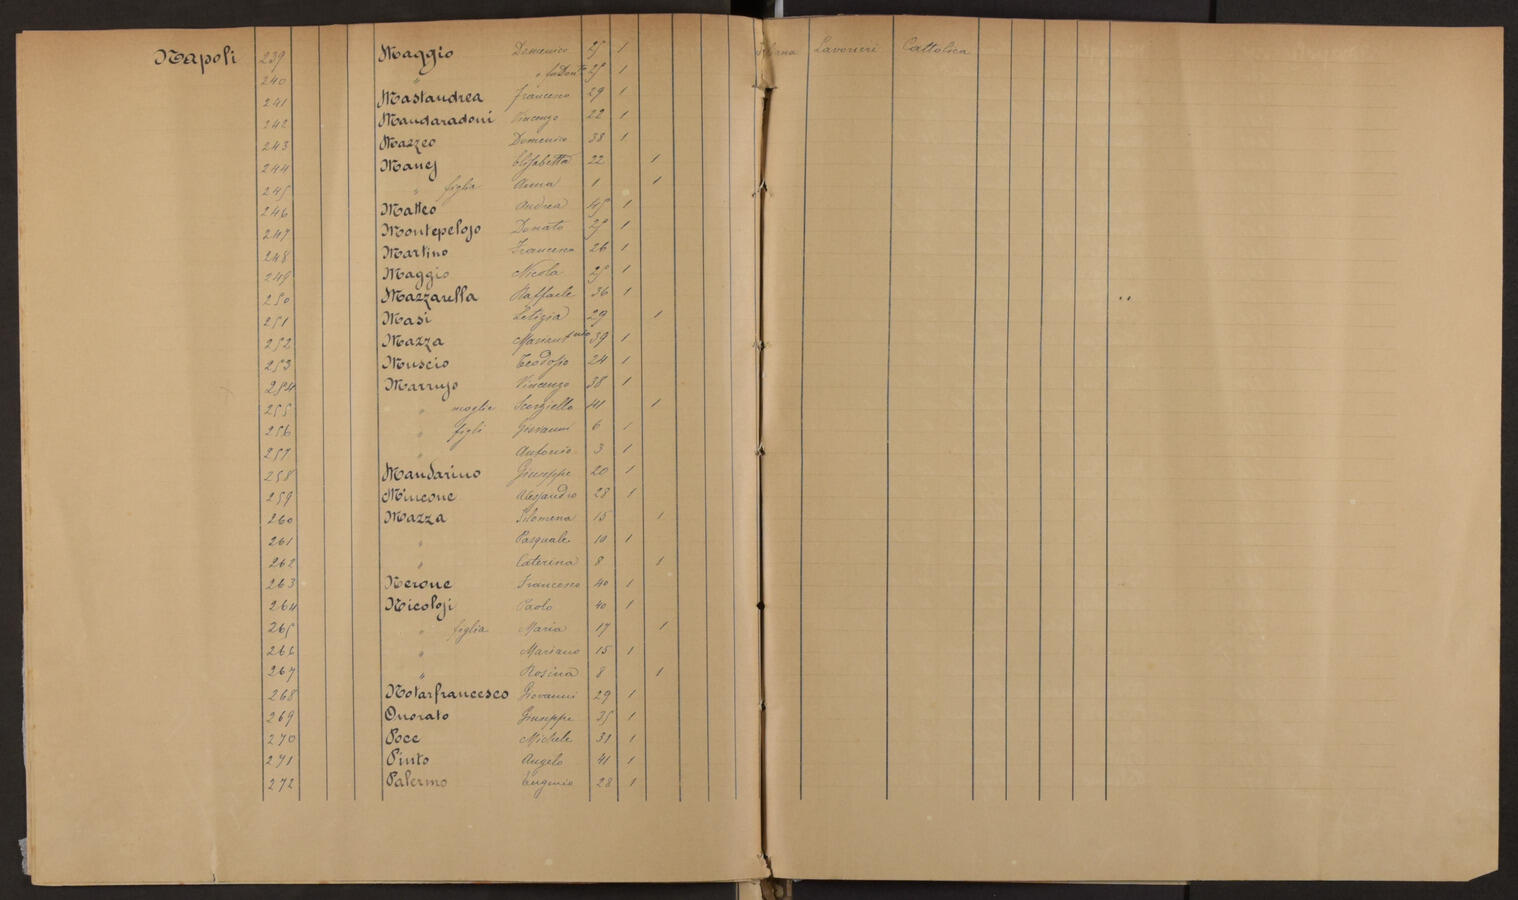 Napoli 239 Maggio Domenico 25 1 Italiana Lavorieri Cattolica
240 " " fu Don.to 25 1
241 Mastandrea Francesco 29 1
242 Mandaradoni Vincenzo 22 1
243 Mazzeo Domenico 38 1
244 Manej Elisabetta 22 1
245 " figlia Anna 1 1
246 Matteo Andrea 45 1
247 Montepeloso Donato 25 1
248 Martino Francesco 26 1
249 Maggio Nicola 25 1
250 Mazzarella Raffaele 36 1
251 Masi Letizia 29 1
252 Mazza 39 1
253 Muscio Teodosio 24 1
254 Marrujo Vincenzo 38 1
255 " moglie 41 1
256 " figli Giovanni 6 1
257 " Antonio 3 1
258 Mandarino Giuseppe 20 1
259 Mincone Alessandro 28 1
260 Mazza Filomena 15 1
261 " Pasquale 10 1
262 " Caterina 8 1
263 Nerone Francesco 40 1
264 Nicolosi Paolo 40 1
265 " figlia Maria 17 1
266 " Mariano 15 1
267 " Rosina 8 1
268 Notarfrancesco Giovanni 29 1
269 Onorato Giuseppe 35 1
270 Poce Michele 31 1
271 Pinto Angelo 41 1
272 Palermo Eugenio 28 1